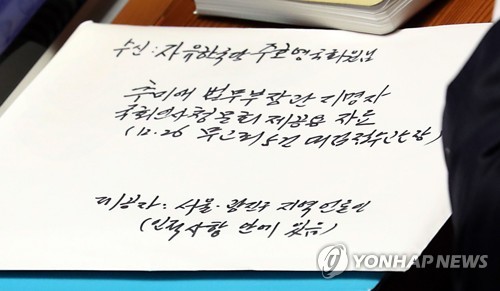 수신 : 자유한국당 주호영국회의원님
추미애 법무부장관 지명자
국회인사청문회 제공용 자료
(12.26 5건 대검접수
제공자 : 서울·광진구 지역 언론인
(인적사항 안에 있음)
YONHAP NEWS